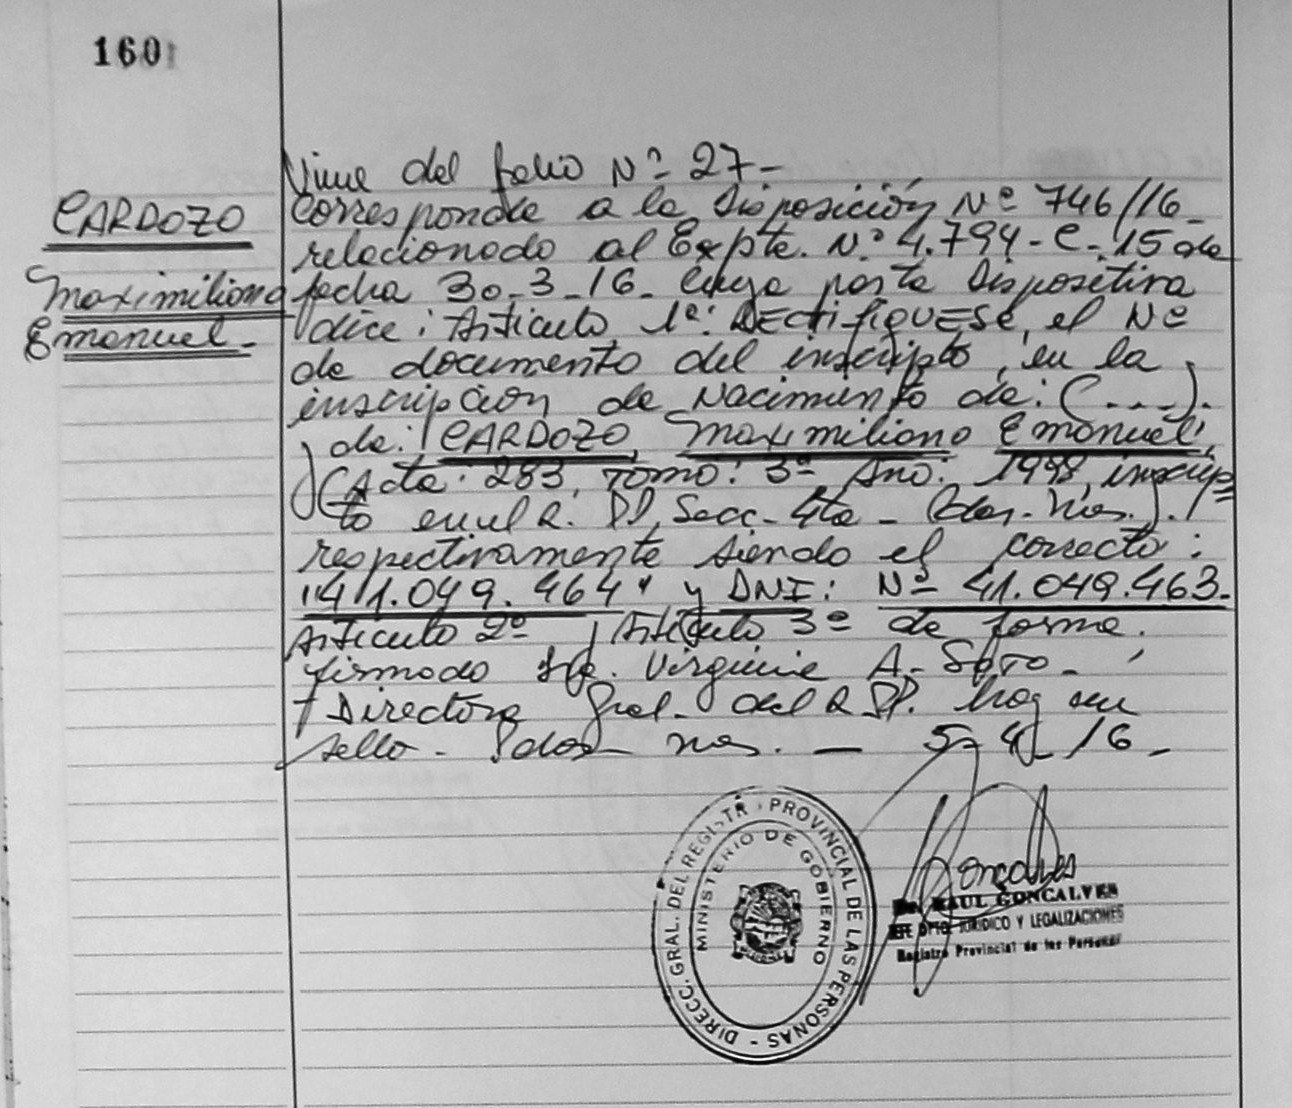 160
Viene del folio Nº 27-
CARDOZO
Maximiliano
Emanuel.-
Corresponde a la Disposición Nº 746/16-
relacionado al Expte. Nº 4.794-C-15 de
fecha 30-3-16- cuya parte Dispositiva
dice: Artículo 1º: RECTIFIQUESE, el Nº
de documento del inscripto, en la
inscripción de Nacimiento de: (...).
de: CARDOZO, Maximiliano Emanuel,
(Acta: 283, Tomo: 3º Año: 1998, inscrip
to en el R. PP, Secc- 4ta - Pdas. Mnes.).
respectivamente siendo el correcto:
"41.049.464" y DNI: Nº 41.049.463.
Artículo 2º Artículo 3º de forma.
firmado Virginia A. Soto-
Directora Gral. del R PP. hay un
sello- Pdas- Mnes. — 5-4-16-
Goncalves
RAUL GONCALVES
JEFE DPTO. JURIDICO Y LEGALIZACIONES
Registro Provincial de las Personas
DIRECC. GRAL. DEL REGISTR PROVINCIAL DE LAS PERSONAS -
MINISTERIO DE GOBIERNO